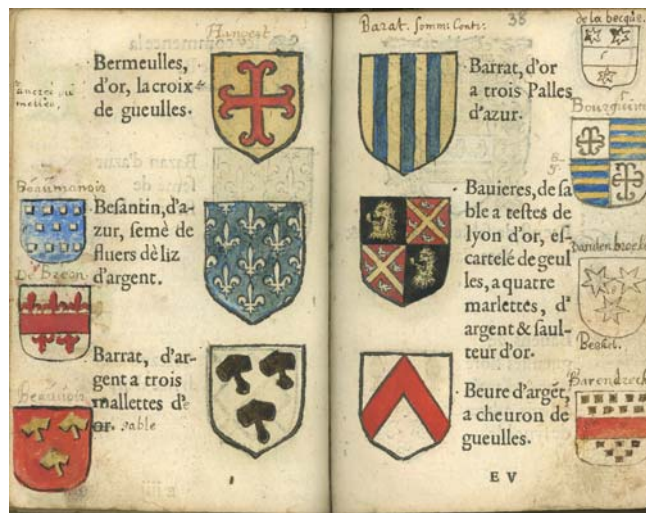 Hangest
Bermeulles,
d'or, la croix
de gueulles.
ancrée ou
Beaumanois
Besantin, d'a-
zur, semè de
fluers dè liz
d'argent.
De Breon.
Barrat, d'ar-
gent a trois
mallettes d'
or. sable
Beauuois
Barat. sommi Cont.:
38
de la becque.
Barrat, d'or
a trois Palles
d'azur.
Bourguin
Bauieres, de sa
ble a testes de
lyon d'or, es-
cartelé de geul
les, a quatre
marlettes, d'
argent & saul-
teur d'or.
Vandenbroeke
Beure d'argẽt,
a cheuron de
gueulles.
Barendrech
E V